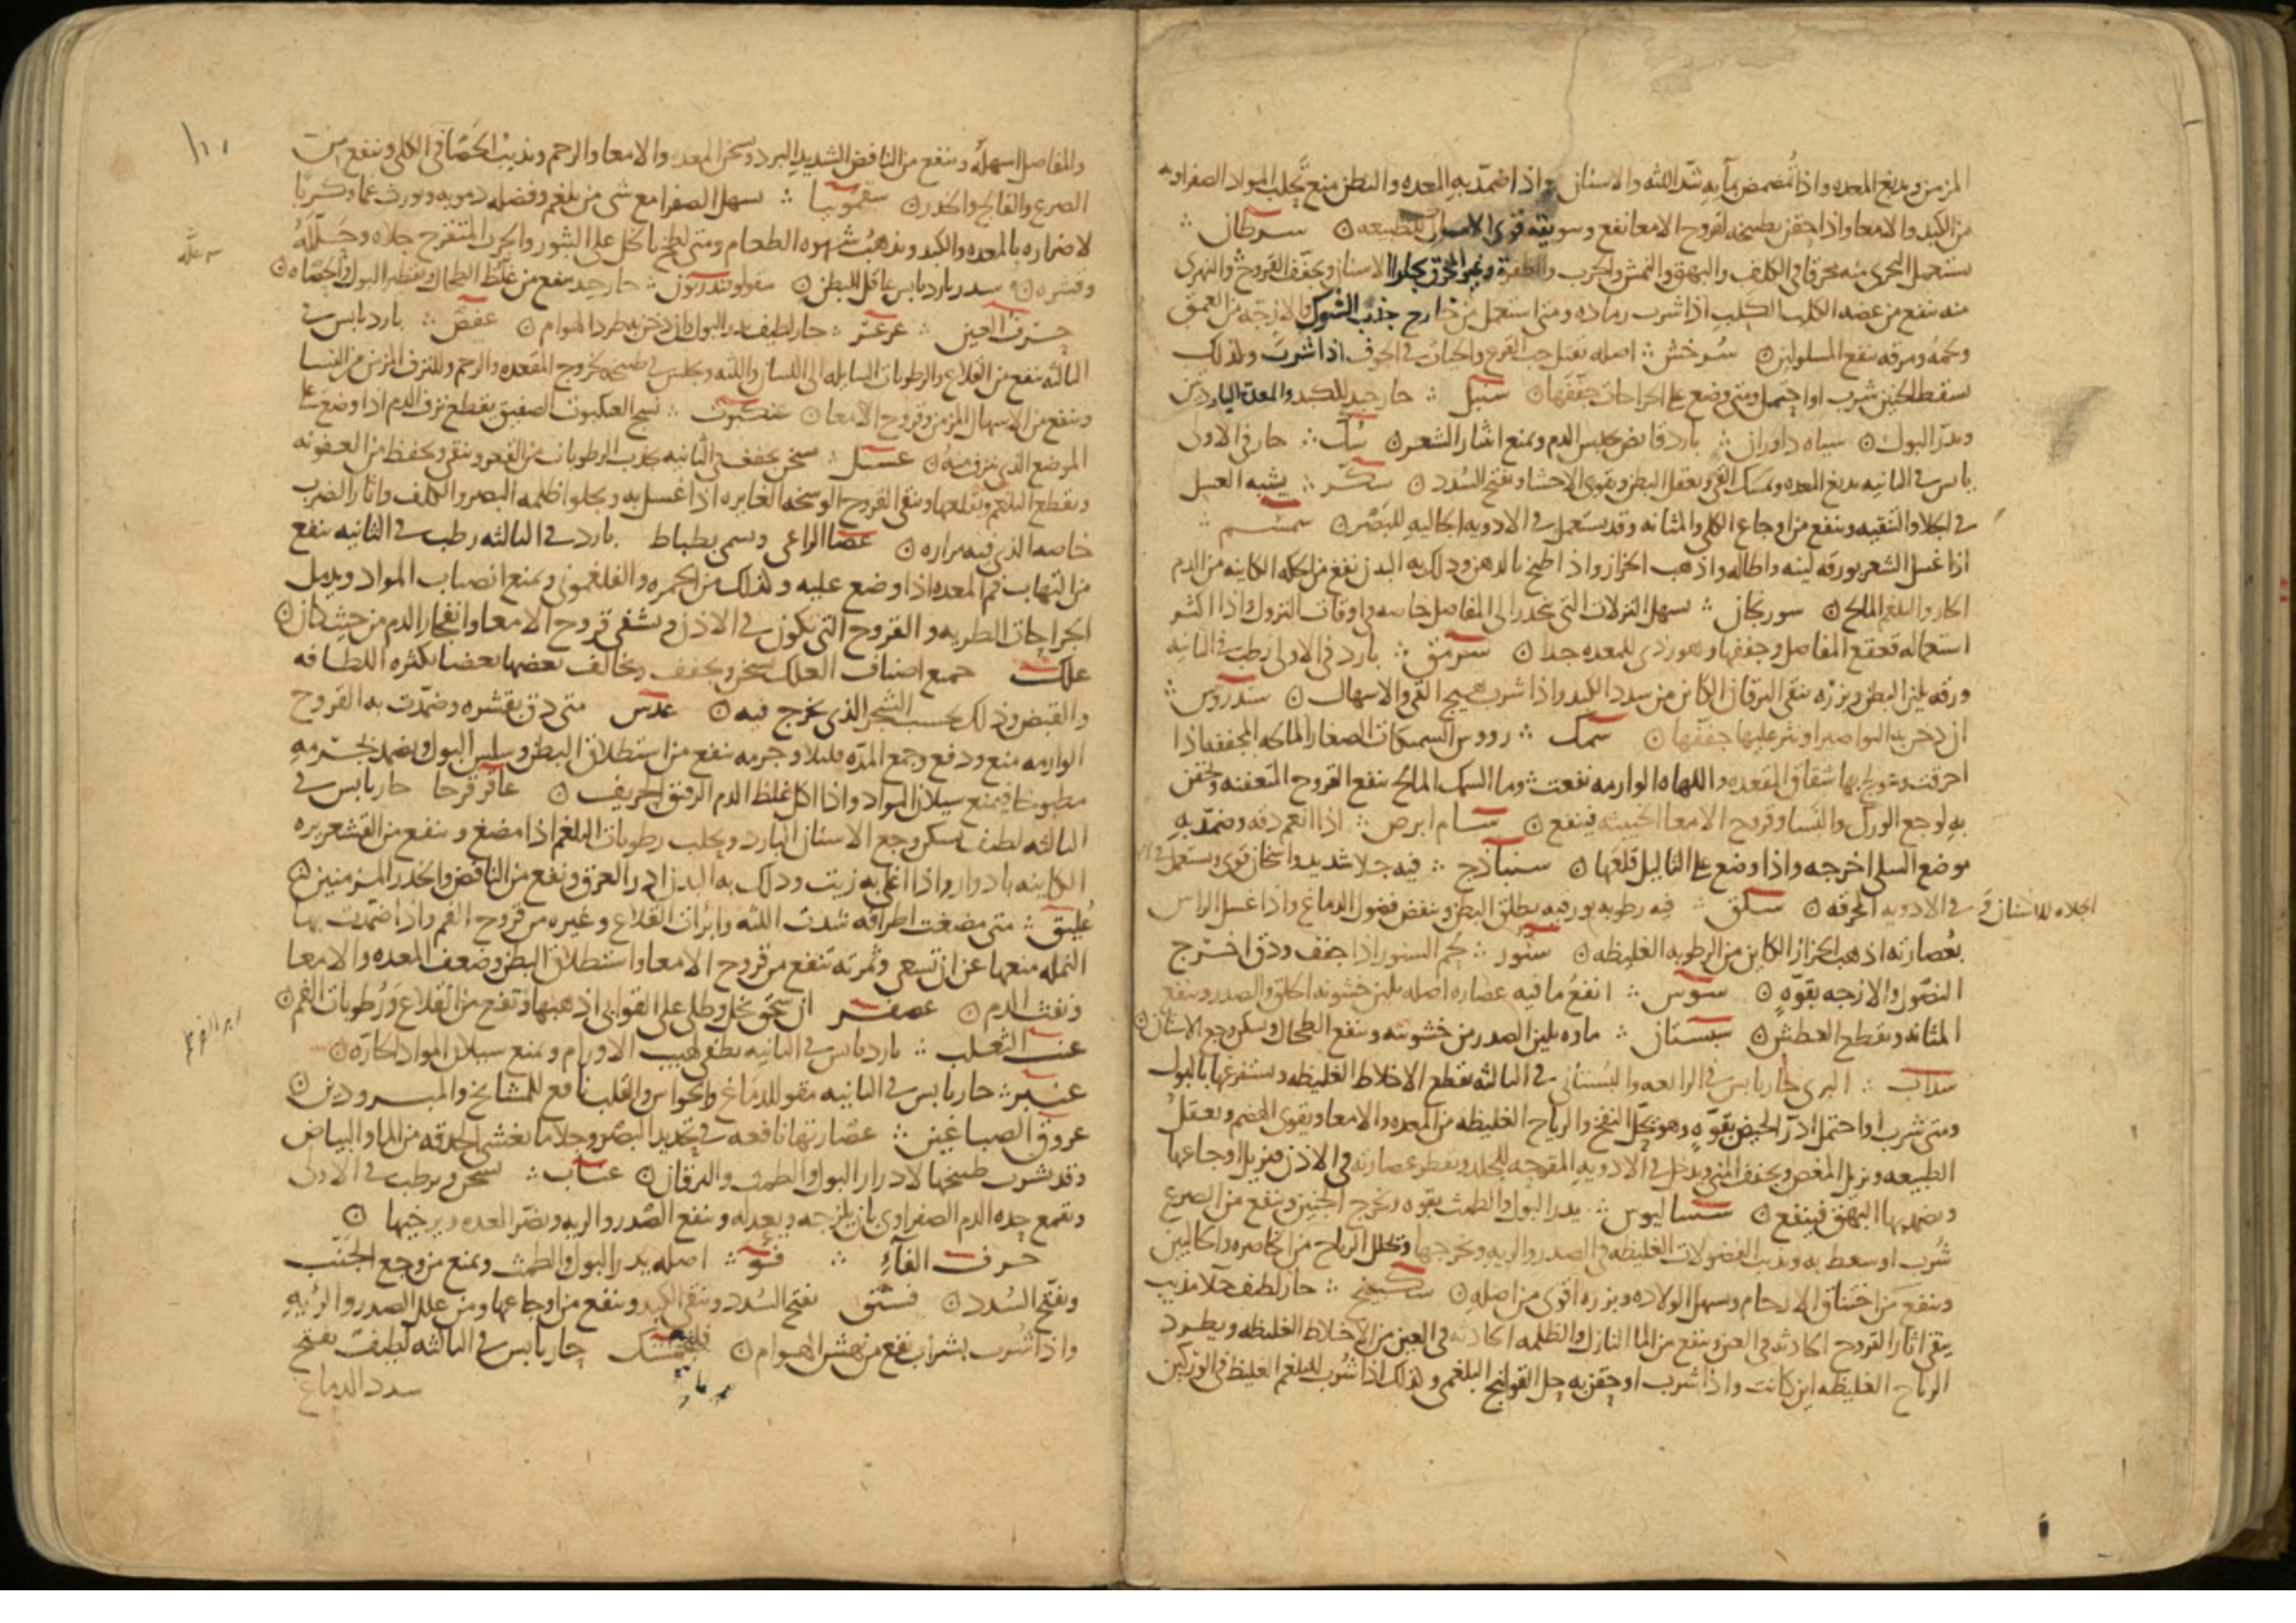 المزمن ويدبغ المعده واذا تمضمض بمآيه شد اللثه والاسنان واذا ضمد به المعده والبطن منع تجلب المواد الصفراويه
من الكبد والامعا واذا احتقن بطبيخه لقروح الامعا نفع وسويقه قوى الامساك للطبيعه سرطان
يستعمل البحرى منه محرقا فى الكلف والبهق والنمش والجرب والظفره وغير المحرق يجلوا الاسنان ويجفف القروح والنهرى
منه نفع من عضه الكلب الكلب اذا شرب رماده ومتى استعمل من خارج جذب الشوك والازجه من العمق
ولحمه ومرقه ينفع المسلولين سرخس اصله يقتل حب القرع والحيات فى الجوف اذا شرب ولذلك
يسقط الجنين شرب او احتمل ومتى وضع على الجراحات جففها سنبل حار جيد للكبد والمعده الباردتين
ويدر البول سياه داوران بارد قابض يحبس الدم ويمنع انتثار الشعر سك حار فى الاولى
يابس فى الثانيه يدبغ المعده ويمسك القى ويعقل البطن ويقوى الاحشا ويفتح السدد سكر يشبه العسل
فى الجلا والتنقيه وينفع من اوجاع الكلى والمثانه وقد يستعمل فى الادويه الجاليه للبصر سمسم
اذا غسل الشعر بورقه لينه واطاله واذهب الحزاز واذا طبخ بالدهن ودلك به البدن نفع من الحكه الكاينه من الدم
الحار والبلغم المالح سورنجان يسهل النزلات التى تنحدر الى المفاصل خاصه فى اوقات النزول واذا اكثر
استعماله تعقع المفاصل وجففها وهو ردى للمعده جدا سرمق بارد فى الاولى رطب فى الثانيه
ورقه يلين البطن وبزره ينقى اليرقان الكاين من سدد الكبد واذا شرب هيج القى والاسهال سندروس
ان دخن به البواصير او نثر عليها جففها سمك رووس السمكات الصغار المالحه المجففه اذا
احرقت وعولج بها شقاق المقعده واللهاه الوارمه نفعت وما السمك المالح ينفع القروح المتعفنه ويحقن
به لوجع الورك والنسا وقروح الامعا الخبيثه فينفع سام ابرص اذا انعم دقه وضمد به
موضع السلى اخرجه واذا وضع على الثاليل قلعها سنباذج فيه جلا شديد واسخان قوى ويستعمل فى
الجلاء للاسنان و فى الادويه المحرقه سلق فيه رطوبه بورقيه يطلق البطن وينفض فضول الدماغ واذا غسل الراس
بعصارته اذهب الحزاز الكاين من الرطوبه الغليظه سنور لحم السنور اذا جفف ودق اخرج
النصول والازجه بقوه سوس انفع ما فيه عصاره اصله يلين خشونه الحلق والصدر وينفع
المثانه ويقطع العطش سبستان ماوه يلين الصدر من خشونته وينفع الطحال ويسكن وجع الاسنان
سداب البرى حار يابس فى الرابعه والبستانى فى الثالثه يقطع الاخلاط الغليظه ويستفرغها بالبول
ومتى شرب او احتمل ادر الحيض بقوه وهو يحل النفخ والرياح الغليظه من المعده والامعا ويقوى الهضم ويعقل
الطبيعه ويزيل المغص ويجفف المنى ويدخل فى الادويه المقرحه للجلد ويقطر عصارته فى الاذن فيزيل اوجاعها
ويضمد بها البهق فينفع ساساليوس يدر البول والطمث بقوه ويخرج الجنين وينفع من الصرع
شرب او سعط به ويذيب الفضولات الغليظه فى الصدر والريه ويخرجها ويحلل الرياح من الخاصره والحالبين
وينفع من اختناق الارحام ويسهل الولاده وبزره اقوى من اصله سكبينج حار لطيف جلا مذيب
ينقى اثار القروح الحادثه فى العين وينفع من الما النازل والظلمه الحادثه فى العين من الاخلاط الغليظه ويطرد
الرياح الغليظه اين كانت واذا شرب او حقن به حل القولنج البلغمى ولذلك اذا شرب للبلغم الغليظ فى الوركين
والمفاصل اسهله وينفع من النافض الشديد البرد ويسخن المعده والامعا والرحم ويذيب الحصا فى الكلى وينفع من
الصرع والفالج والخدر سقمونيا يسهل الصفرا مع شى من بلغم وفضله دمويه ويورث غما وكربا
لاضراره بالمعده والكبد ويذهب شهوه الطعام ومتى لطخ بالخل على البثور والجرب المتقرح جلاه وحلله
وقشره سدر بارد يابس عاقل للبطن سقولوقندريون حار جيد ينفع من غلظ الطحال وتقطير البول والحصاه
حرف العين عرعر حار لطيف يدر البول وان دخن به طرد الهوام عفص بارد يابس فى
الثالثه ينفع من القلاع والرطوبات السايله الى اللسان واللثه ويجلس فى طبيخه لخروج المقعده والرحم وللنزف المزمن من النسا
وينفع من الاسهال المزمن وقروح الامعا عنكبوت نسج العنكبوت الصفيق يقطع نزف الدم اذا وضع على
الموضع الذى ينزف منه عسل سخن يجفف فى الثانيه يجذب الرطوبات من القعر وينقى ويحفظ من العفونه
ويقطع البلغم ويقلعها وينقى القروح الوسخه الغايره اذا غسل به ويجلوا ظلمه البصر والكلف واثار الضرب
خاصه الذى فيه مراره عصا الراعى ويسمى بطباط بارد فى الثالثه رطب فى الثانيه ينفع
من التهاب فم المعده اذا وضع عليه ولذلك من الحمره والفلغمونى ويمنع انصباب المواد ويدمل
الجراحات الطريه والقروح التى تكون فى الاذن ويشفى قروح الامعا وانفجار الدم من حيث كان
علك جميع اصناف العلك يسخن ويجفف ويخالف بعضها بعضا بكثره اللطافه
والقبض وذلك بحسب الشجر الذى يخرج فيه عدس متى دق بقشره وضمدت به القروح
الوارمه منع ودفع وجمع المده قليلا وجرمه ينفع من استطلاق البطن وسلس البول ويضمد بجرمه
مطبوخا فيمنع سيلان المواد واذا اكل غلظ الدم الرقيق الحريف عاقرقرحا حار يابس فى
الثالثه لطيف يسكن وجع الاسنان البارد ويجلب رطوبات البلغم اذا مضغ وينفع من القشعريره
الكاينه بادوار واذا اغلى به زيت ودلك به البدن ادر العرق ونفع من النافض والخدر المزمنين
عليق متى مضغت اطرافه شدت اللثه وابرات القلاع وغيره من قروح الفم واذا ضمدت بها
النمله منعها عن ان تسعى وثمرته تنفع من قروح الامعا واستطلاق البطن وضعف المعده والامعا
ونفث الدم عصفر ان سحق بخل وطلى على القوابى اذهبها وتنفع من القلاع ورطوبات الفم
عنب الثعلب بارد يابس فى الثانيه يطفى لهيب الاورام ويمنع سيلان المواد الحاره
عنبر حار يابس فى الثانيه مقو للدماغ والحواس والقلب نافع للمشايخ والمبرودين
عروق الصباغين عصارتها نافعه فى تحديد البصر وجلا ما يغشى الحدقه من الما والبياض
وقد يشرب طبيخها لادرار البول والطمث واليرقان عناب يسخن ويرطب فى الاولى
ويقمع حده الدم الصفراوى بان يلزجه ويعدله وينفع الصدر والريه ويضر المعده ويرخيها
حرف الفآء فو اصله يدر البول والطمث ويمنع من وجع الجنب
ويفتح السدد فستق يفتح السدد وينقى الكبد وينفع من اوجاعها ومن علل الصدر والريه
واذا شرب بشراب نفع من نهش الهوام فلنجمشك حار يابس فى الثالثه لطيف يفتح
سدد الدماغ